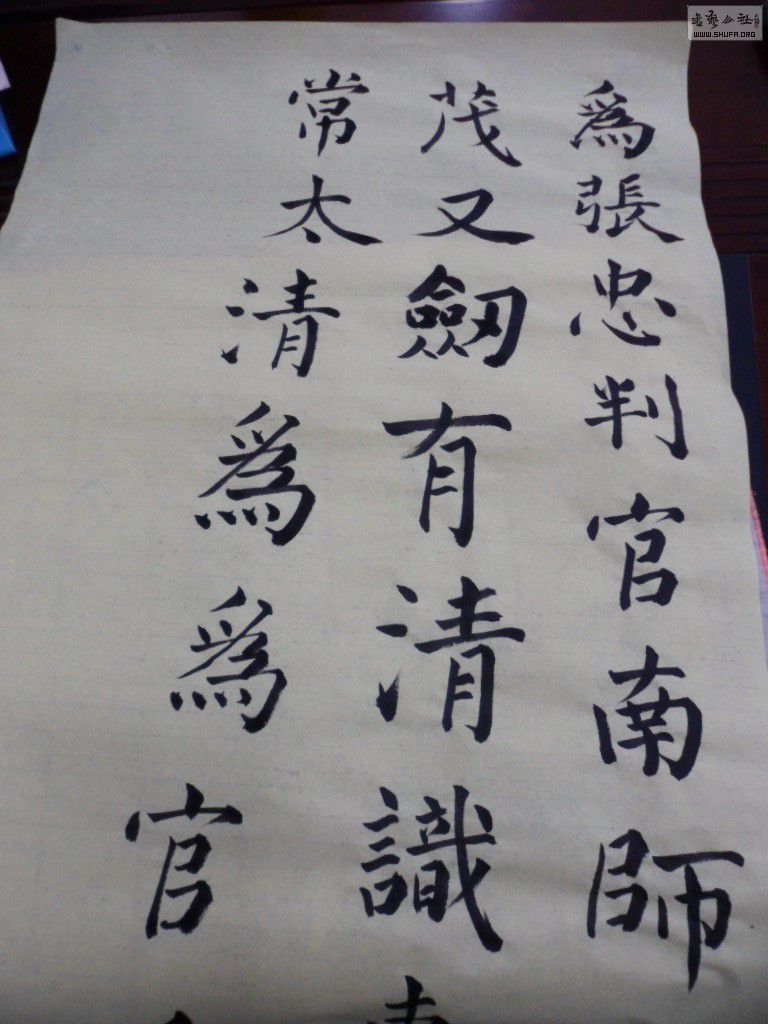 為張忠判官南師
茂又劒有清識
常太清為為官
書藝公社
WWW.SHUFA.ORG